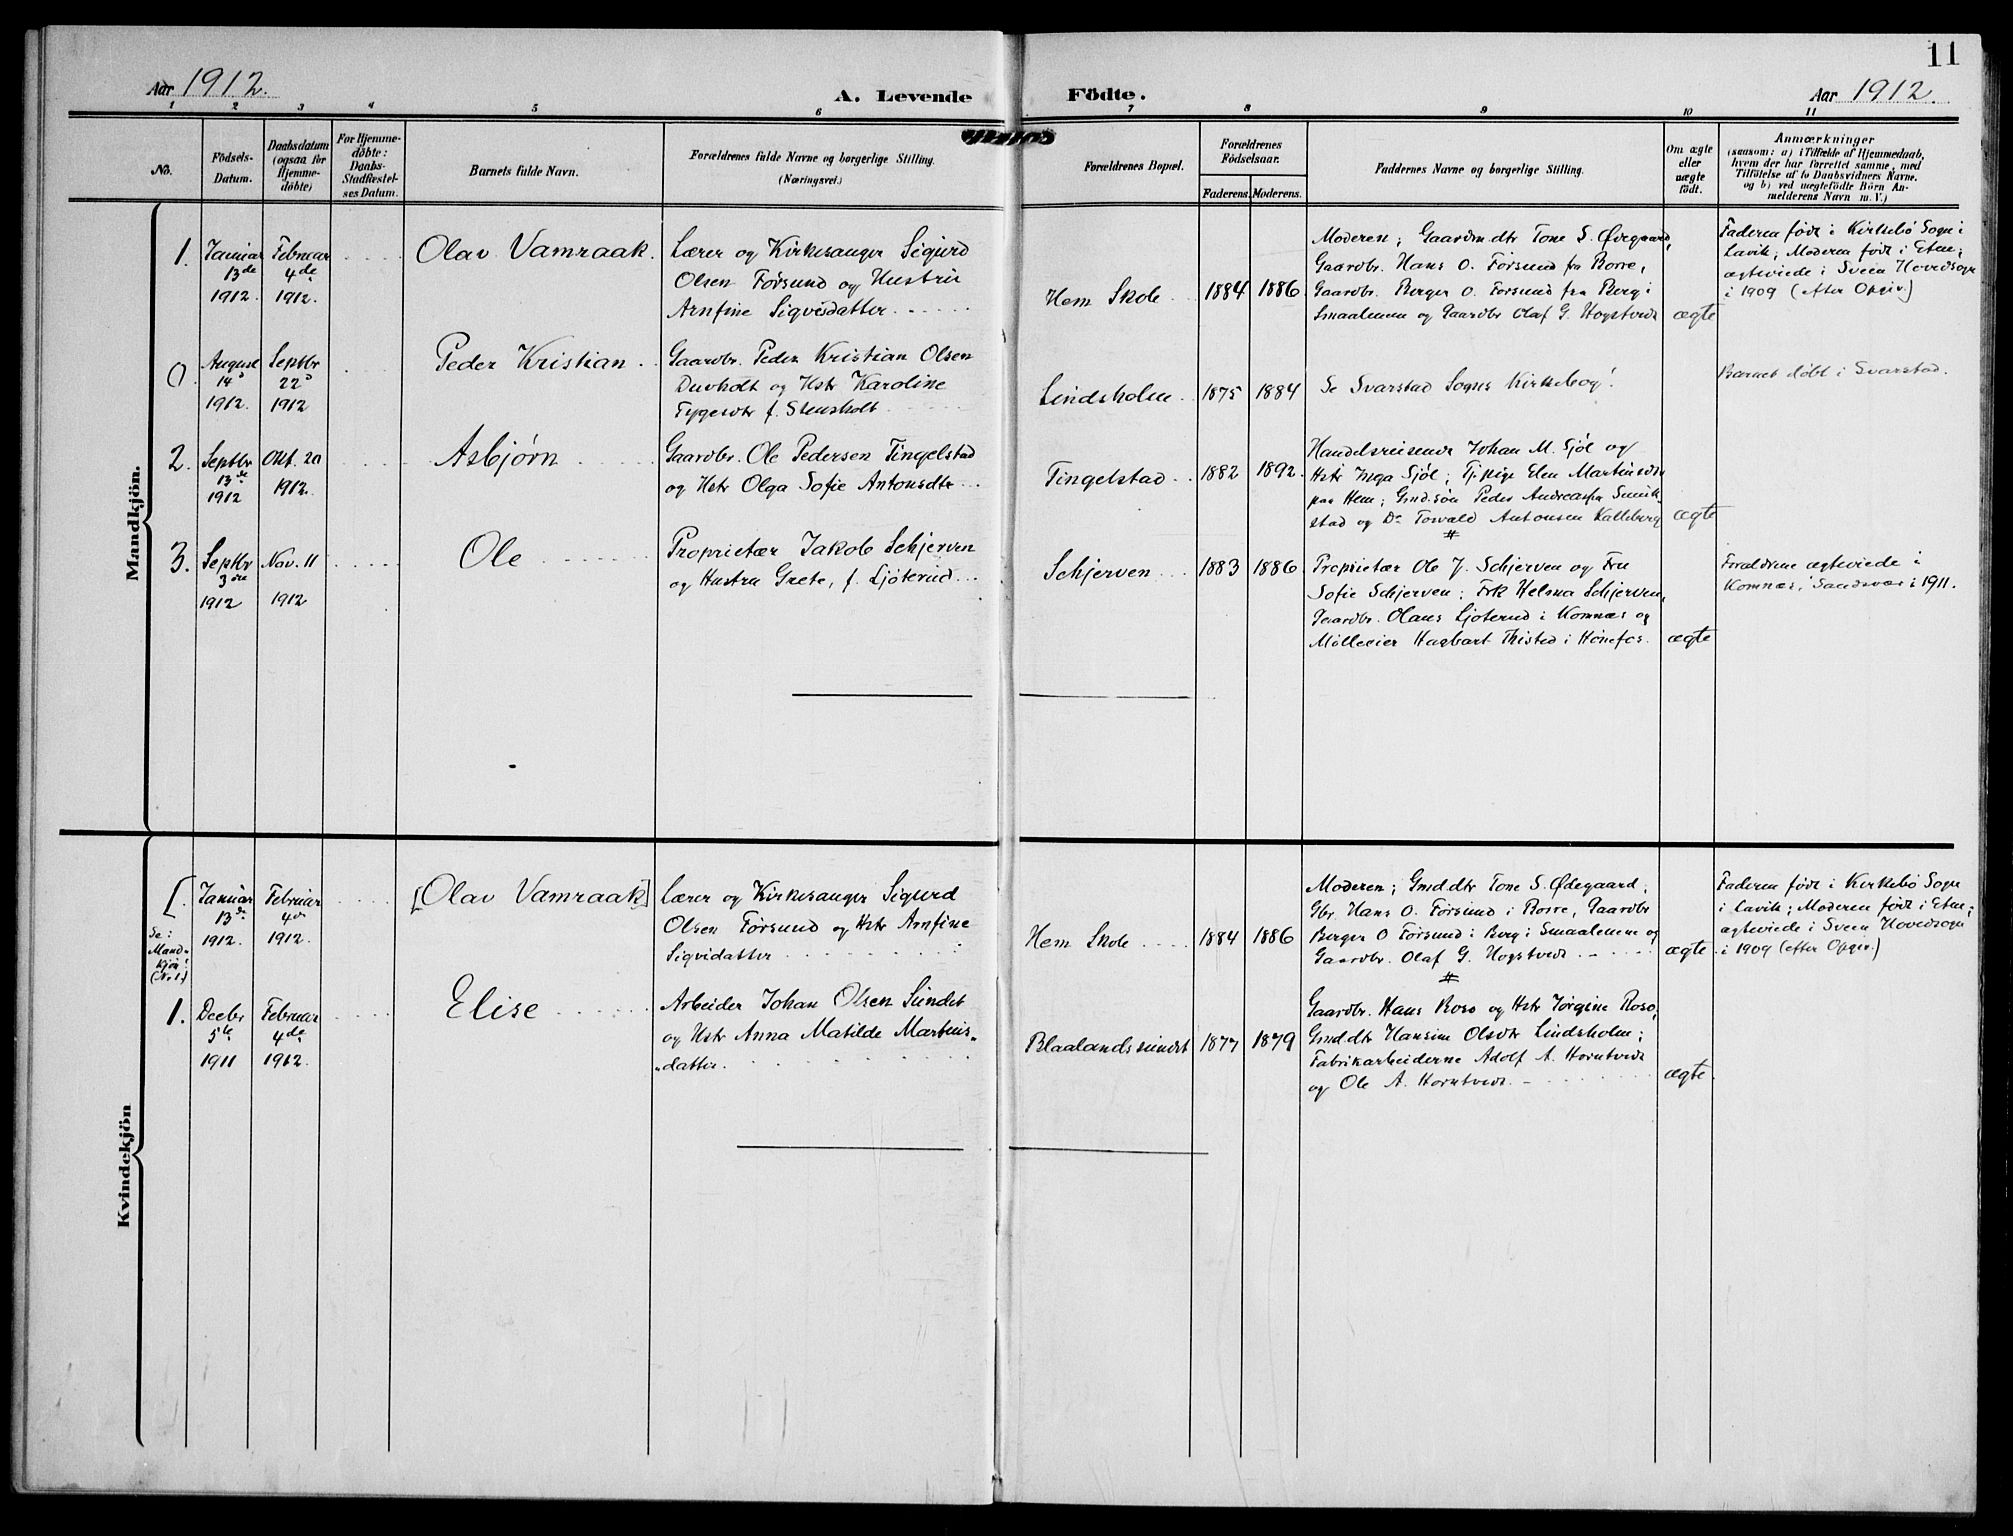 11
Aar 1912. A. Levende Födte. Aar 1912.
1 2 3 4 5 6 7 8 9 10 11
No.
Födsels-
Datum.
Daabsdatum
(ogsaa for
Hjemme-
döbte)
For Hjemme-
döbte:
Daabs-
Stadfæstel-
ses Datum.
Barnets fulde Navn.
Forældrenes fulde Navne og borgerlige Stilling.
(Næringsvei.)
Forældrenes Bopæl.
Forældrenes
Födselsaar.
Faderens. Moderens.
Faddernes Navne og borgerlige Stilling.
Om ægte
eller
uægte
födt.
Anmærkninger
(saasom: a) i Tilfælde af Hjemmedaab,
hvem der har forrettet samme, med
Tilföielse af to Daabsvidners Navne.
og b) ved uægtefödte Börn An-
melderens Navn m. V.)
Mandkjön.
1.
Januar
13de
1912.
Februar
4de
1912.
Olav Vamraak.
Lærer og Kirkesanger Sigurd
Olsen Førsund og Hustru
Arnfine Sigvesdatter
Hem Skole
1884
1886
Moderen; Gaardm.dtr Tone S. Ødegaard,
Gaardbr. Hans O. Førsund fra Borre,
Gaardbr. Berger O. Førsund fra Berg i
Smaalenene og Gaardbr Olaf G. Hogstvedt
ægte
Faderen født i Kirkebö Sogn i
Lavik, Moderen født i Etne;
ægteviede i Sveen Hovedsogn
i 1909 (efter Opgiv.)
0.
August
14d
1912.
Septbr
22d
1912
Peder Kristian
Gaardbr. Peder Kristian Olsen
Duvholt og Hstr Karoline
Tygesdtr f. Stensholt
Lindsholm
1875
1884
Se Svarstad Sogns Kirkebog!
Barnet döbt i Svarstad.
2.
Septbr
13de
1912
Okt. 20
1912.
Asbjørn
Gaardbr. Ole Pedersen Tingelstad
og Hstr Olga Sofie Antonsdtr
Tingelstad
1882
1892.
Handelsreisende Johan M. Sjöl og
Hstr Inga Sjöl; Tj.pige Elen Martinsen
paa Hem; Gmd.søn Peder Andreas fra Smik-
stad og Do Torvald Antonsen Kalleberg
#
ægte
3.
Septbr
3die
1912
Nov. 11
1912
Ole
Proprietær Jakob Schjerven
og Hustru Grete, f. Ljøterud
Schjerven
1883
1886
Proprietær Ole J. Schjerven og Fru
Sofie Schjerven; Frk Helma Schjerven,
Gaardbr. Olaus Ljøterud i Komnes og
Mølleeier Hagbart Thistad i Hønefos.
ægte
Forældrene ægteviede i
Komnæs, Sandsvær i 1911.
Kvindekjön
[.
Se:
Mand-
kjön
(No 1.)
Januar
13de
1912.
Februar
4de
1912.
[Olav Vamraak]
Lærer og Kirkesanger Sigurd
Olsen Førsund og Hstr Arnfine
Sigvidatter
Hem Skole
1884
1886
Moderen; Gmd.dtr Tone S. Ødegaard;
Gbr. Hans O. Førsund i Borre, Gaardbr
Berger O Førsund i Berg i Smaalenene og
Gaardbr. Olaf G. Hogstvedt
#
ægte
Faderen født i Kirkebø Sogn
i Lavik; Moderen født i Etne;
ægteviede i Sveen Hovedsogn
i 1909 (efter Opgiv.)
1.
Decbr
5te
1911
Februar
4de
1912.
Elise
Arbeider Johan Olsen Sundet
og Hstr Anna Matilde Martins-
datter.
Blaalandssundet
1877
1879
Gaardbr. Hans Roso og Hstr Jørgine Roso;
Gmd.dtr Hansine Olsdtr Lindsholm;
Fabrikarbeiderne Adolf A. Horntvedt
og Ole A. Horntvedt.
ægte.